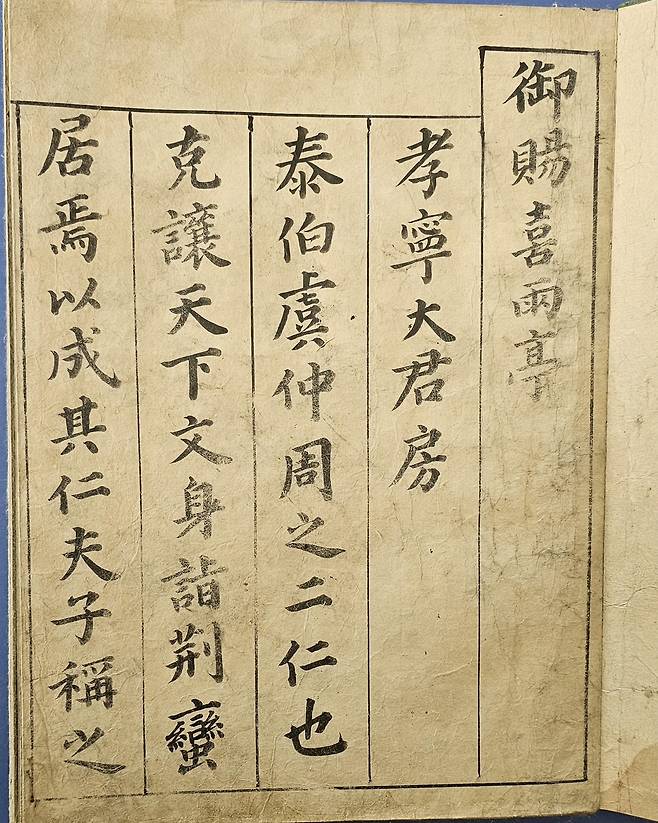 御賜喜雨亭
孝寧大君房
泰伯虞仲周之二仁也
克讓天下文身詣荆蠻
居焉以成其仁夫子稱之